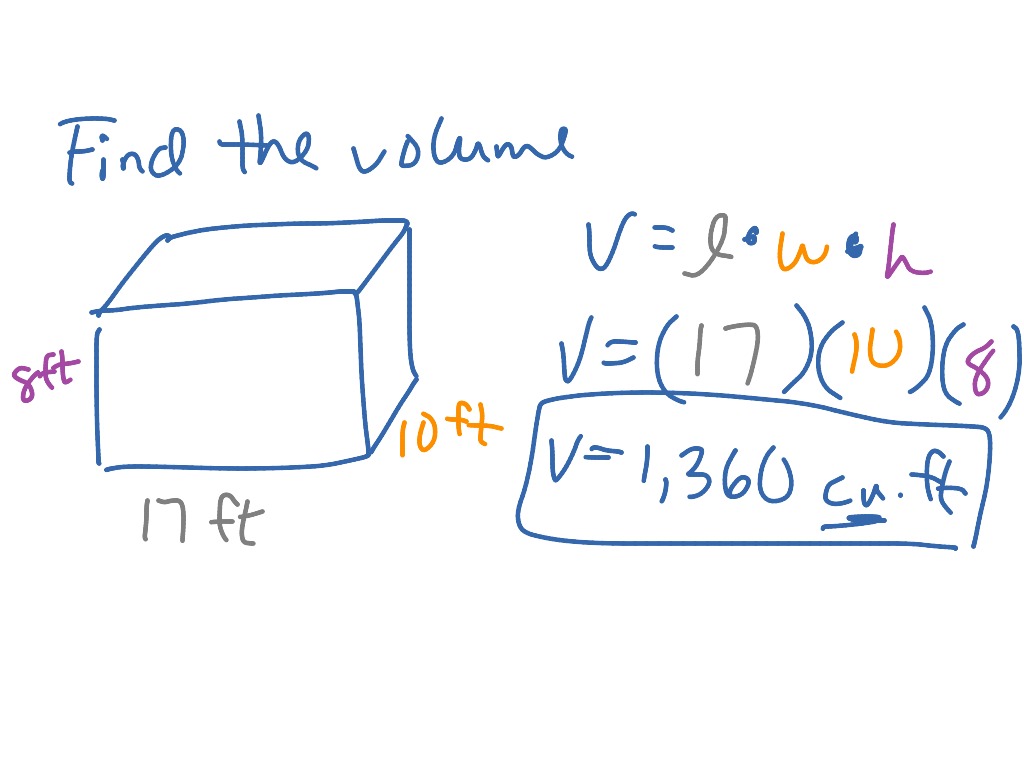 Find the volume
V = l • w • h
V = (17)(10)(8)
8ft
10 ft
V = 1,360 cu. ft
17 ft